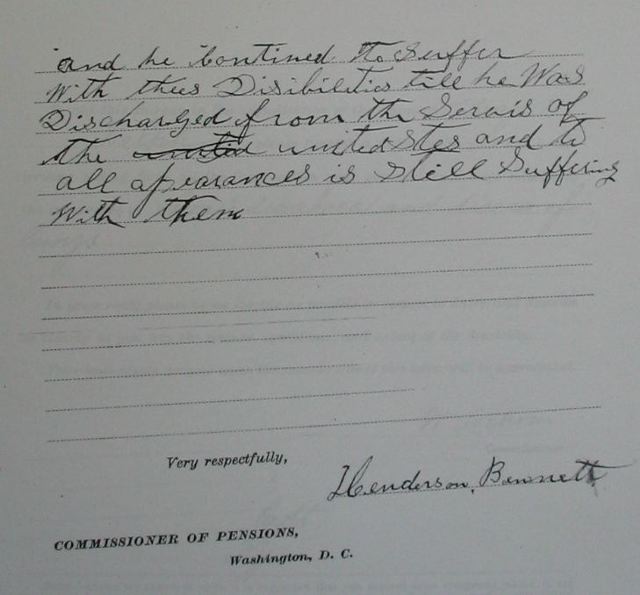 and he Contined to Suffer
With thees Disibilities till he Was
Discharged from the Servis of
the united States and to
all apearances is Still Suffering
With them
Very respectfully,
Henderson Bennett
COMMISSIONER OF PENSIONS,
Washington, D. C.